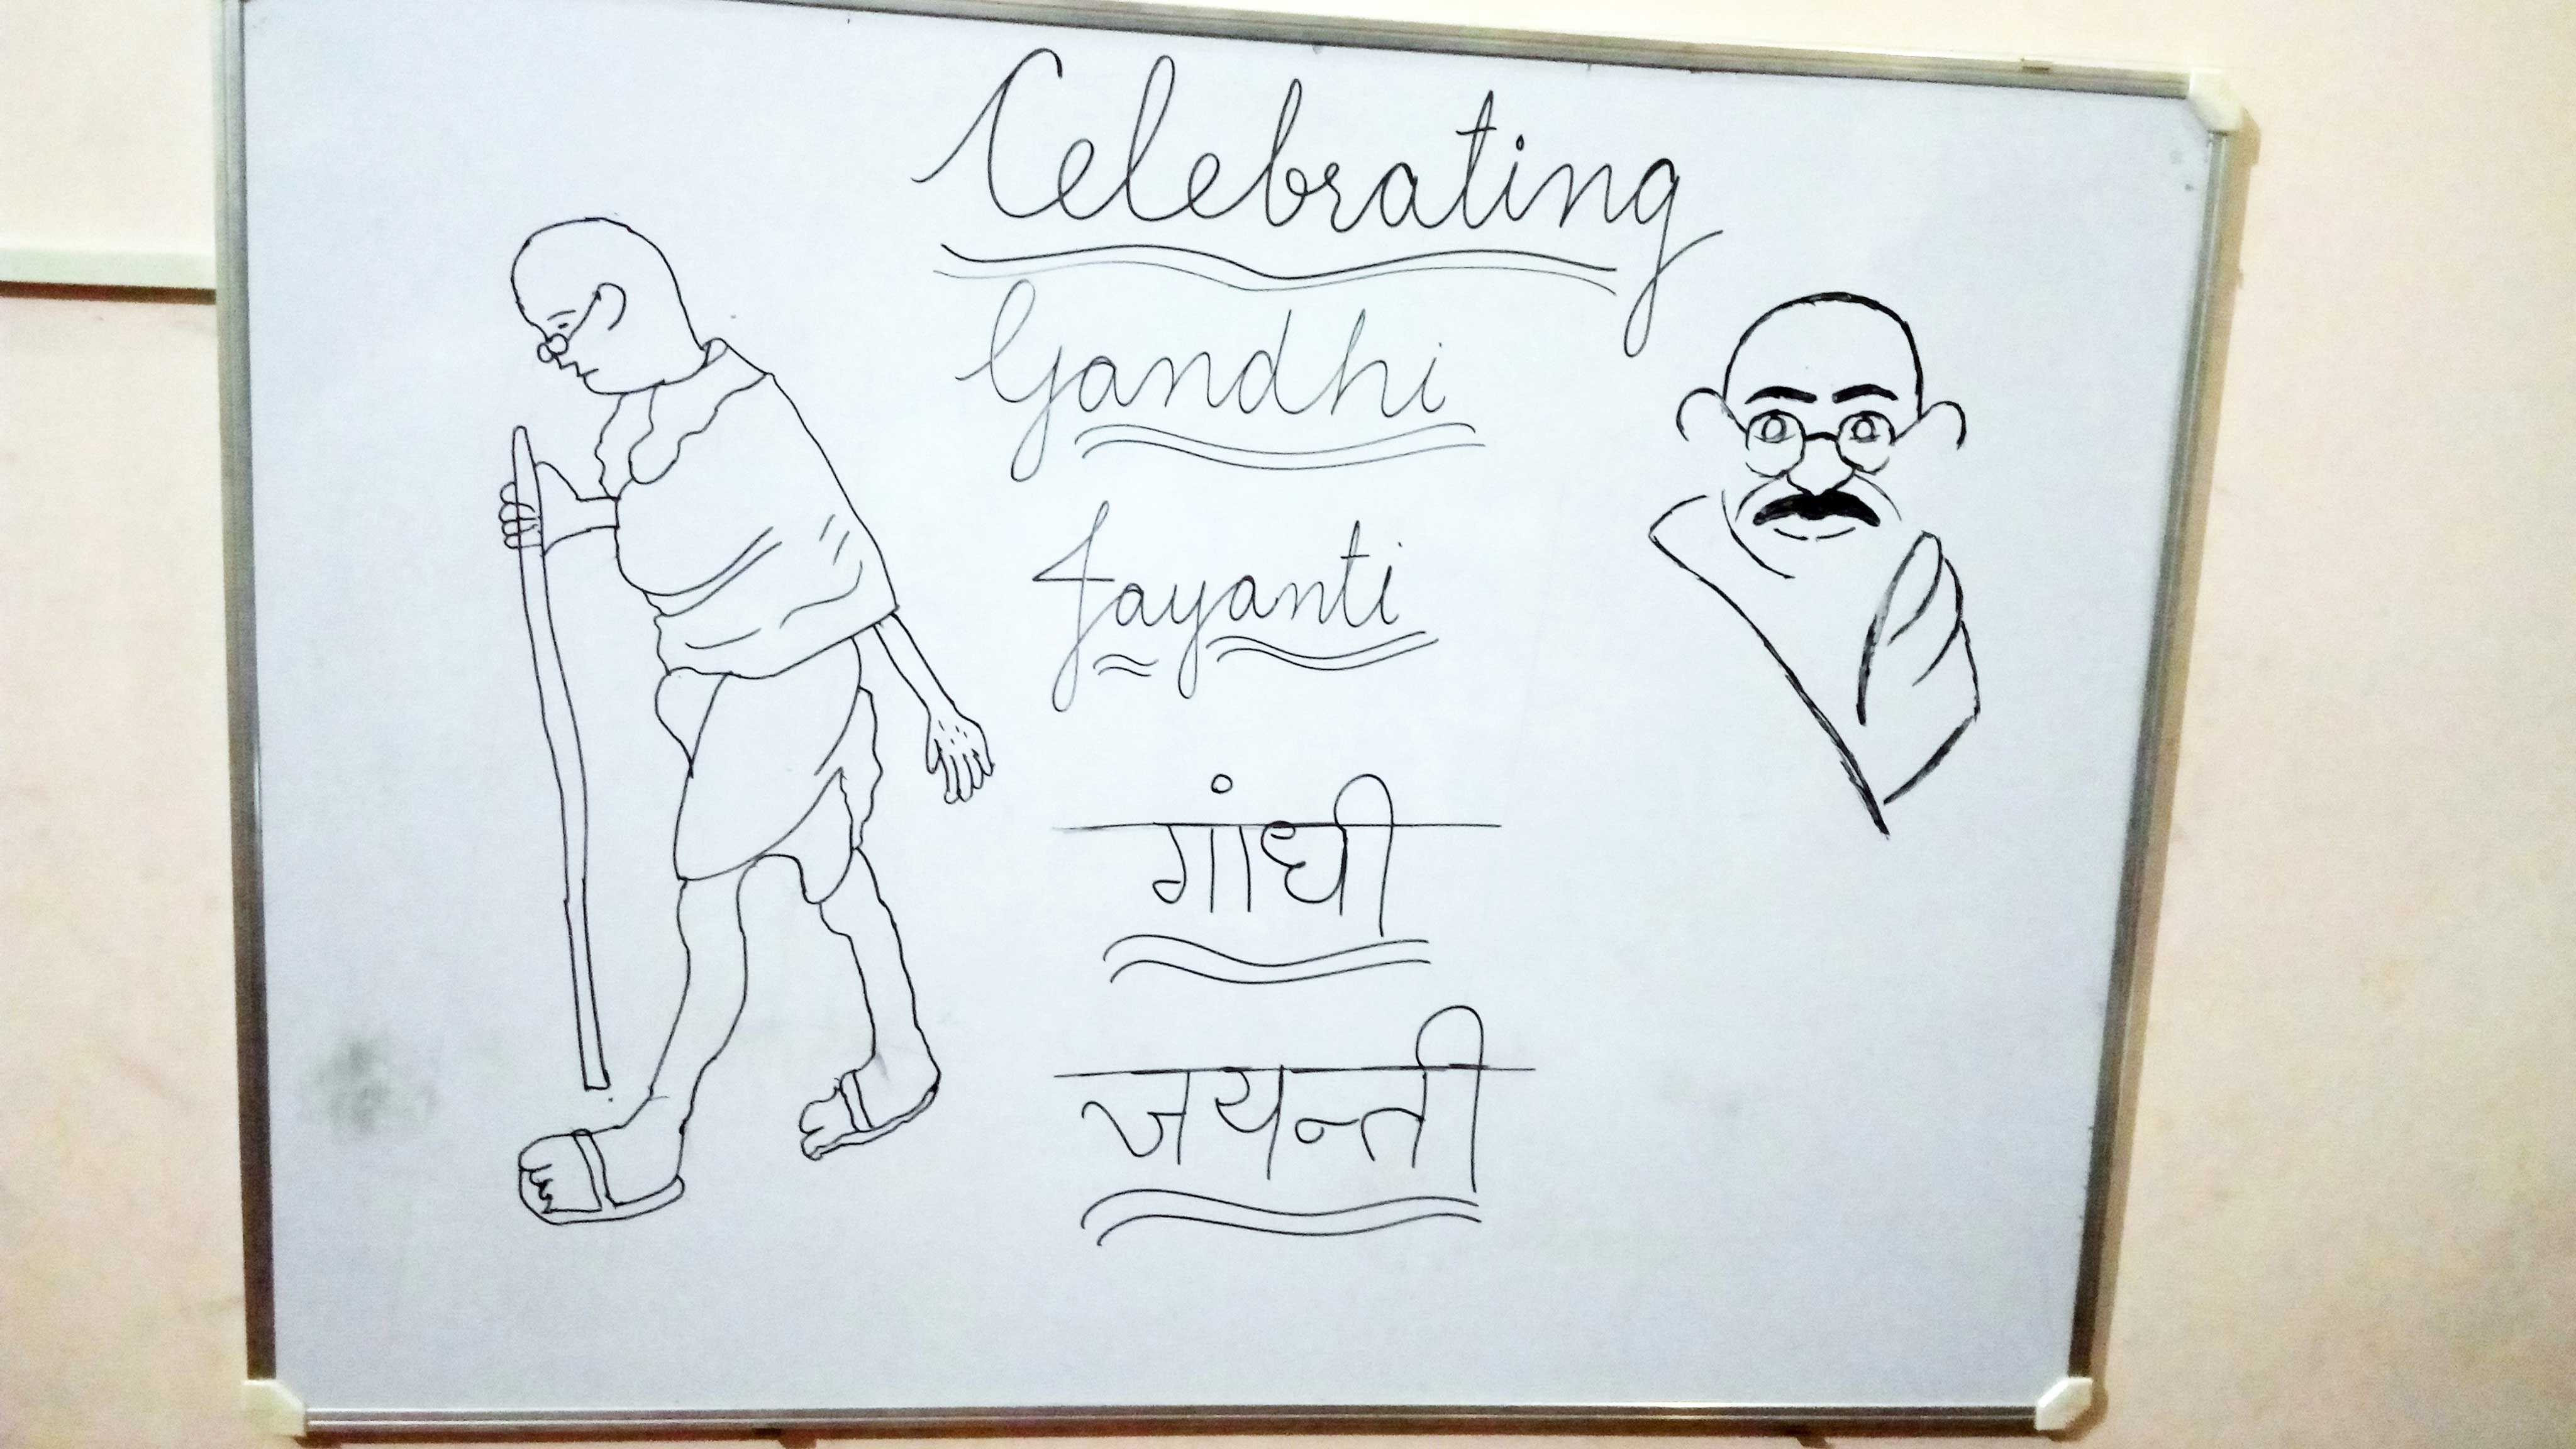 Celebrating
Gandhi
Jayanti
गांधी
जयन्ती